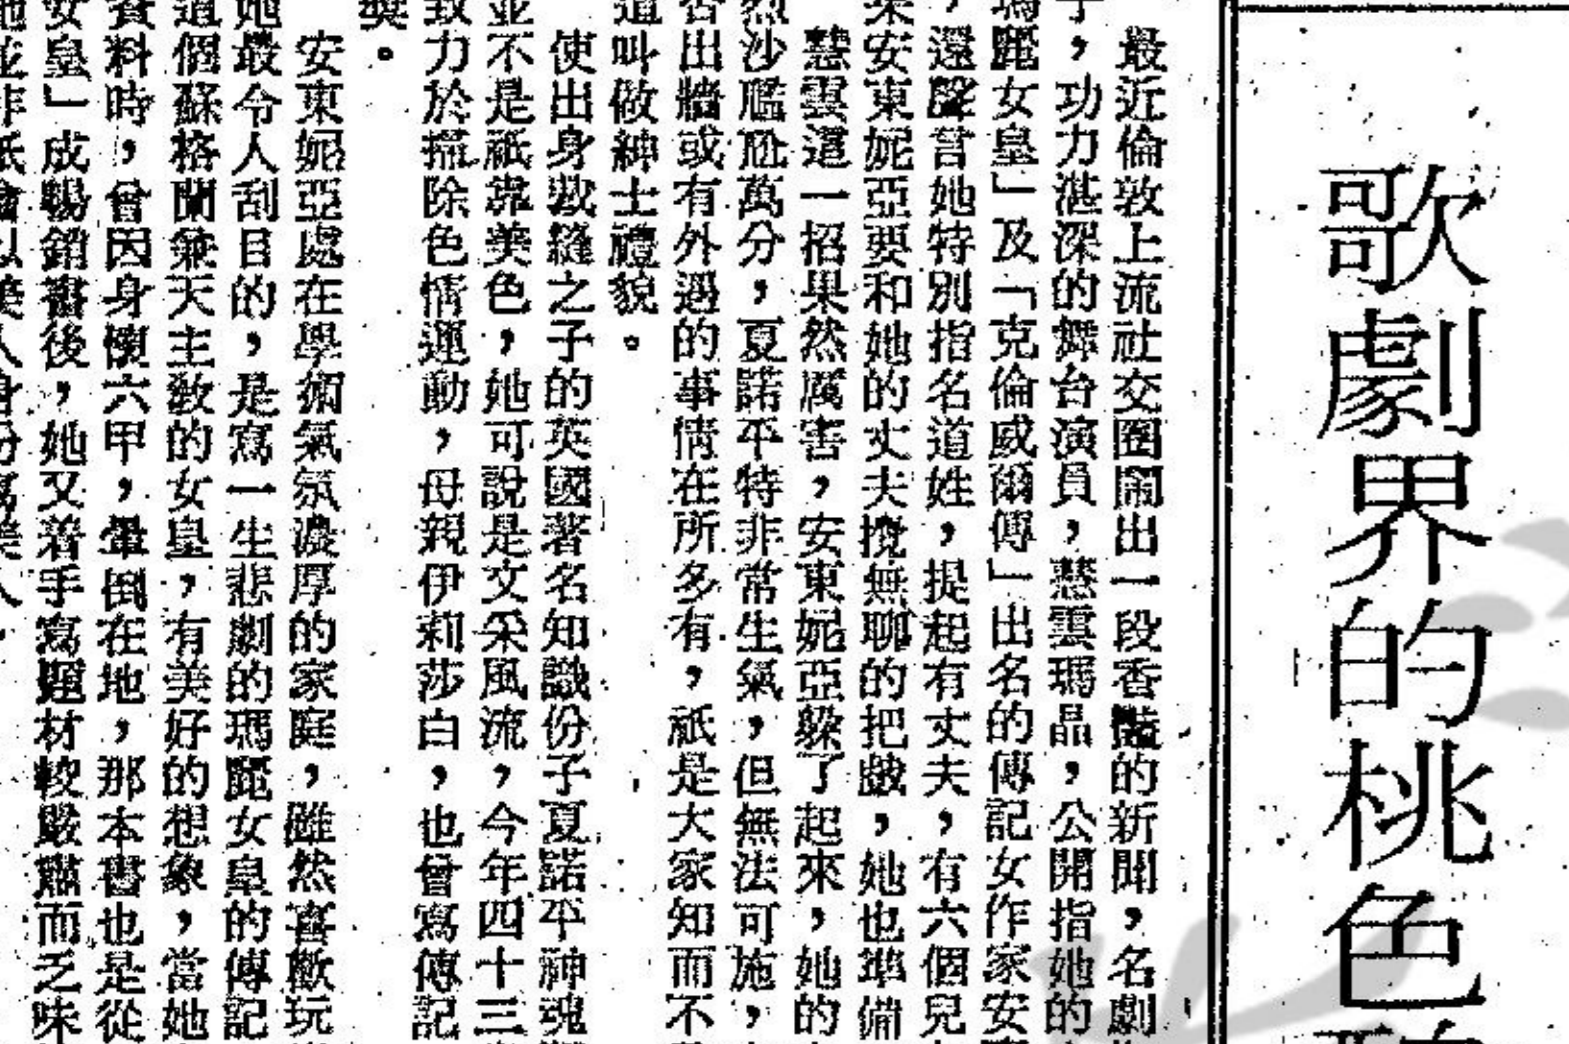 歌劇界的桃色
最近倫敦上流社交圈鬧出一段香豔的新聞，名劇
，功力湛深的舞台演員，慧雲瑪晶，公開指她的
瑪麗女皇」及「克倫威爾傳」出名的傳記女作家安
，還聲言她特別指名道姓，提起有丈夫，有六個兒
安東妮亞要和她的丈夫攪無聊的把戲，她也準備
慧雲這一招果然厲害，安東妮亞躲了起來，她的
烈沙尷尬萬分，夏諾平特非常生氣，但無法可施，
否出牆或有外遇的事情在所多有，祇是大家知而不
道叫做紳士禮貌。
使出身裁縫之子的英國著名知識份子夏諾平神魂
並不是祇靠美色，她可說是文采風流，今年四十三
致力於掃除色情運動，母親伊莉莎白，也曾寫傳記
獎。
安東妮亞處在學術氣氛濃厚的家庭，雖然喜歡玩
她最令人刮目的，是寫一生悲劇的瑪麗女皇的傳記
這個蘇格蘭兼天主教的女皇，有美好的想象，當她
資料時，曾因身懷六甲，暈倒在地，那本書也是從
女皇」成暢銷書後，她又着手寫題材較嚴肅而乏味